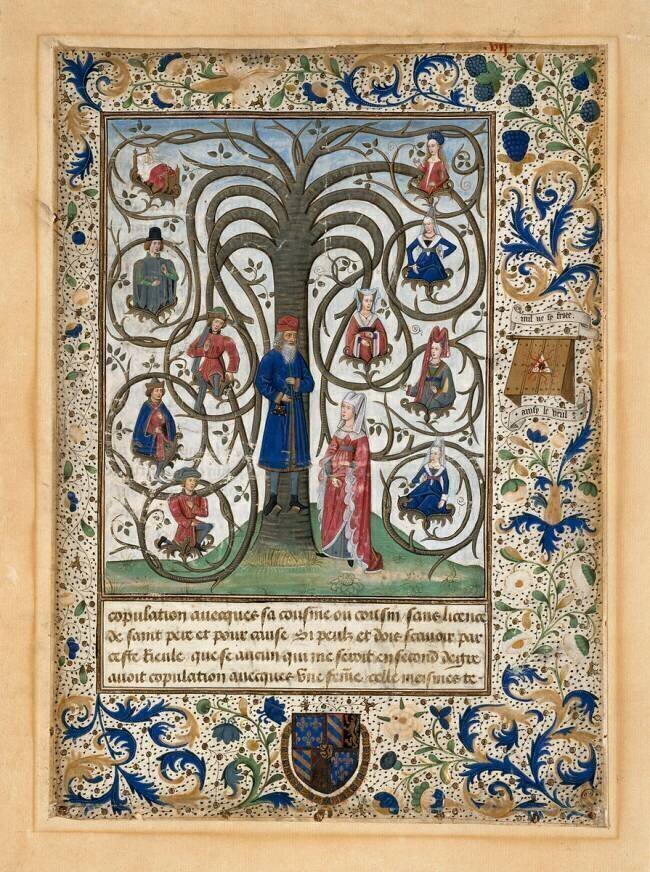 vij
nul ne sy frote
ainsy le veul
copulation auecques sa cousine ou cousin sans licence
de saint pere et pour cause Si peulz et dois scauoir par
ceste Rieule que se aucun qui me seroit en second degre
auoit copulation auecques vne feme celle meismes te-